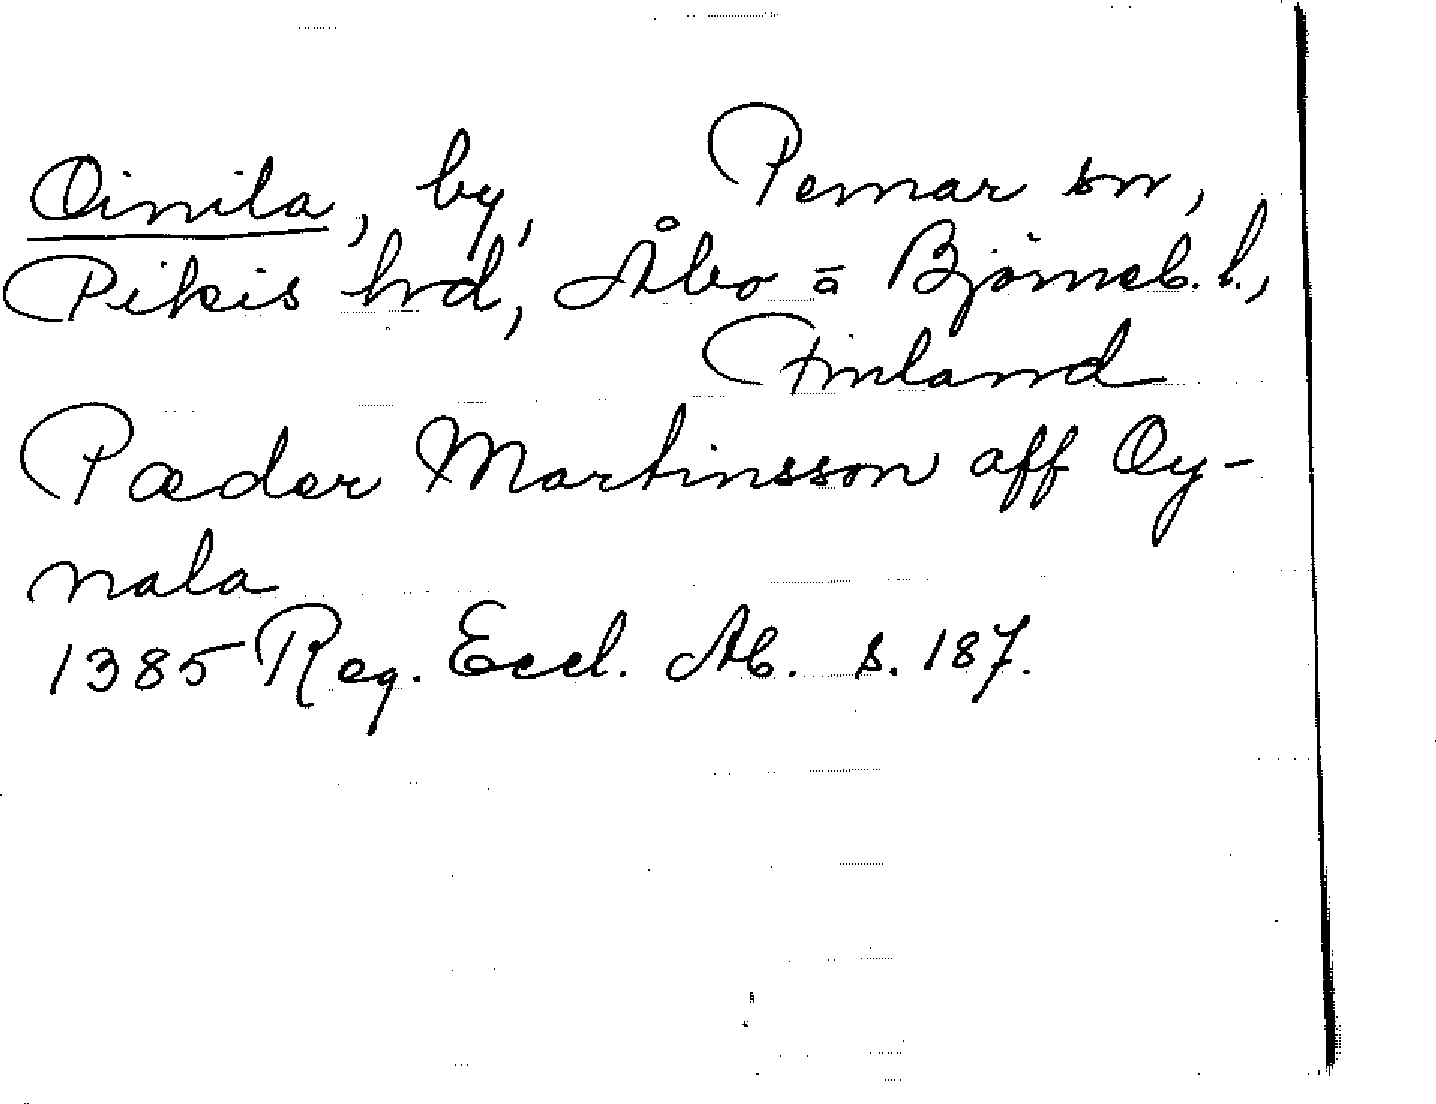 Oinila, by, Pemar sn,
Pikis hrd, Åbo = Björneb. l.,
Finland
Pædær Martinsson aff Oy-
nala
1385 Reg. Eccl. Ab. s. 187.